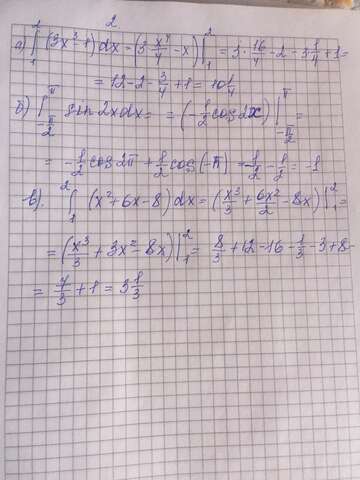 a) ∫₁² (3x³-1)dx = (3 x⁴/4 - x) |₁² = 3·16/4 - 2 - 3 1/4 + 1 =
= 12 - 2 - 3/4 + 1 = 10 1/4
б) ∫_{-π/2}^{π} sin 2x dx = = (-1/2 cos 2x) |_{-π/2}^{π} =
= -1/2 cos 2π + 1/2 cos(-π) = -1/2 - 1/2 = -1
в). ∫₁² (x²+6x-8)dx = (x³/3 + 6x²/2 - 8x) |₁² =
= (x³/3 + 3x² - 8x) |₁² = 8/3 + 12 - 16 - 1/3 - 3 + 8
= 7/3 + 1 = 3 1/3